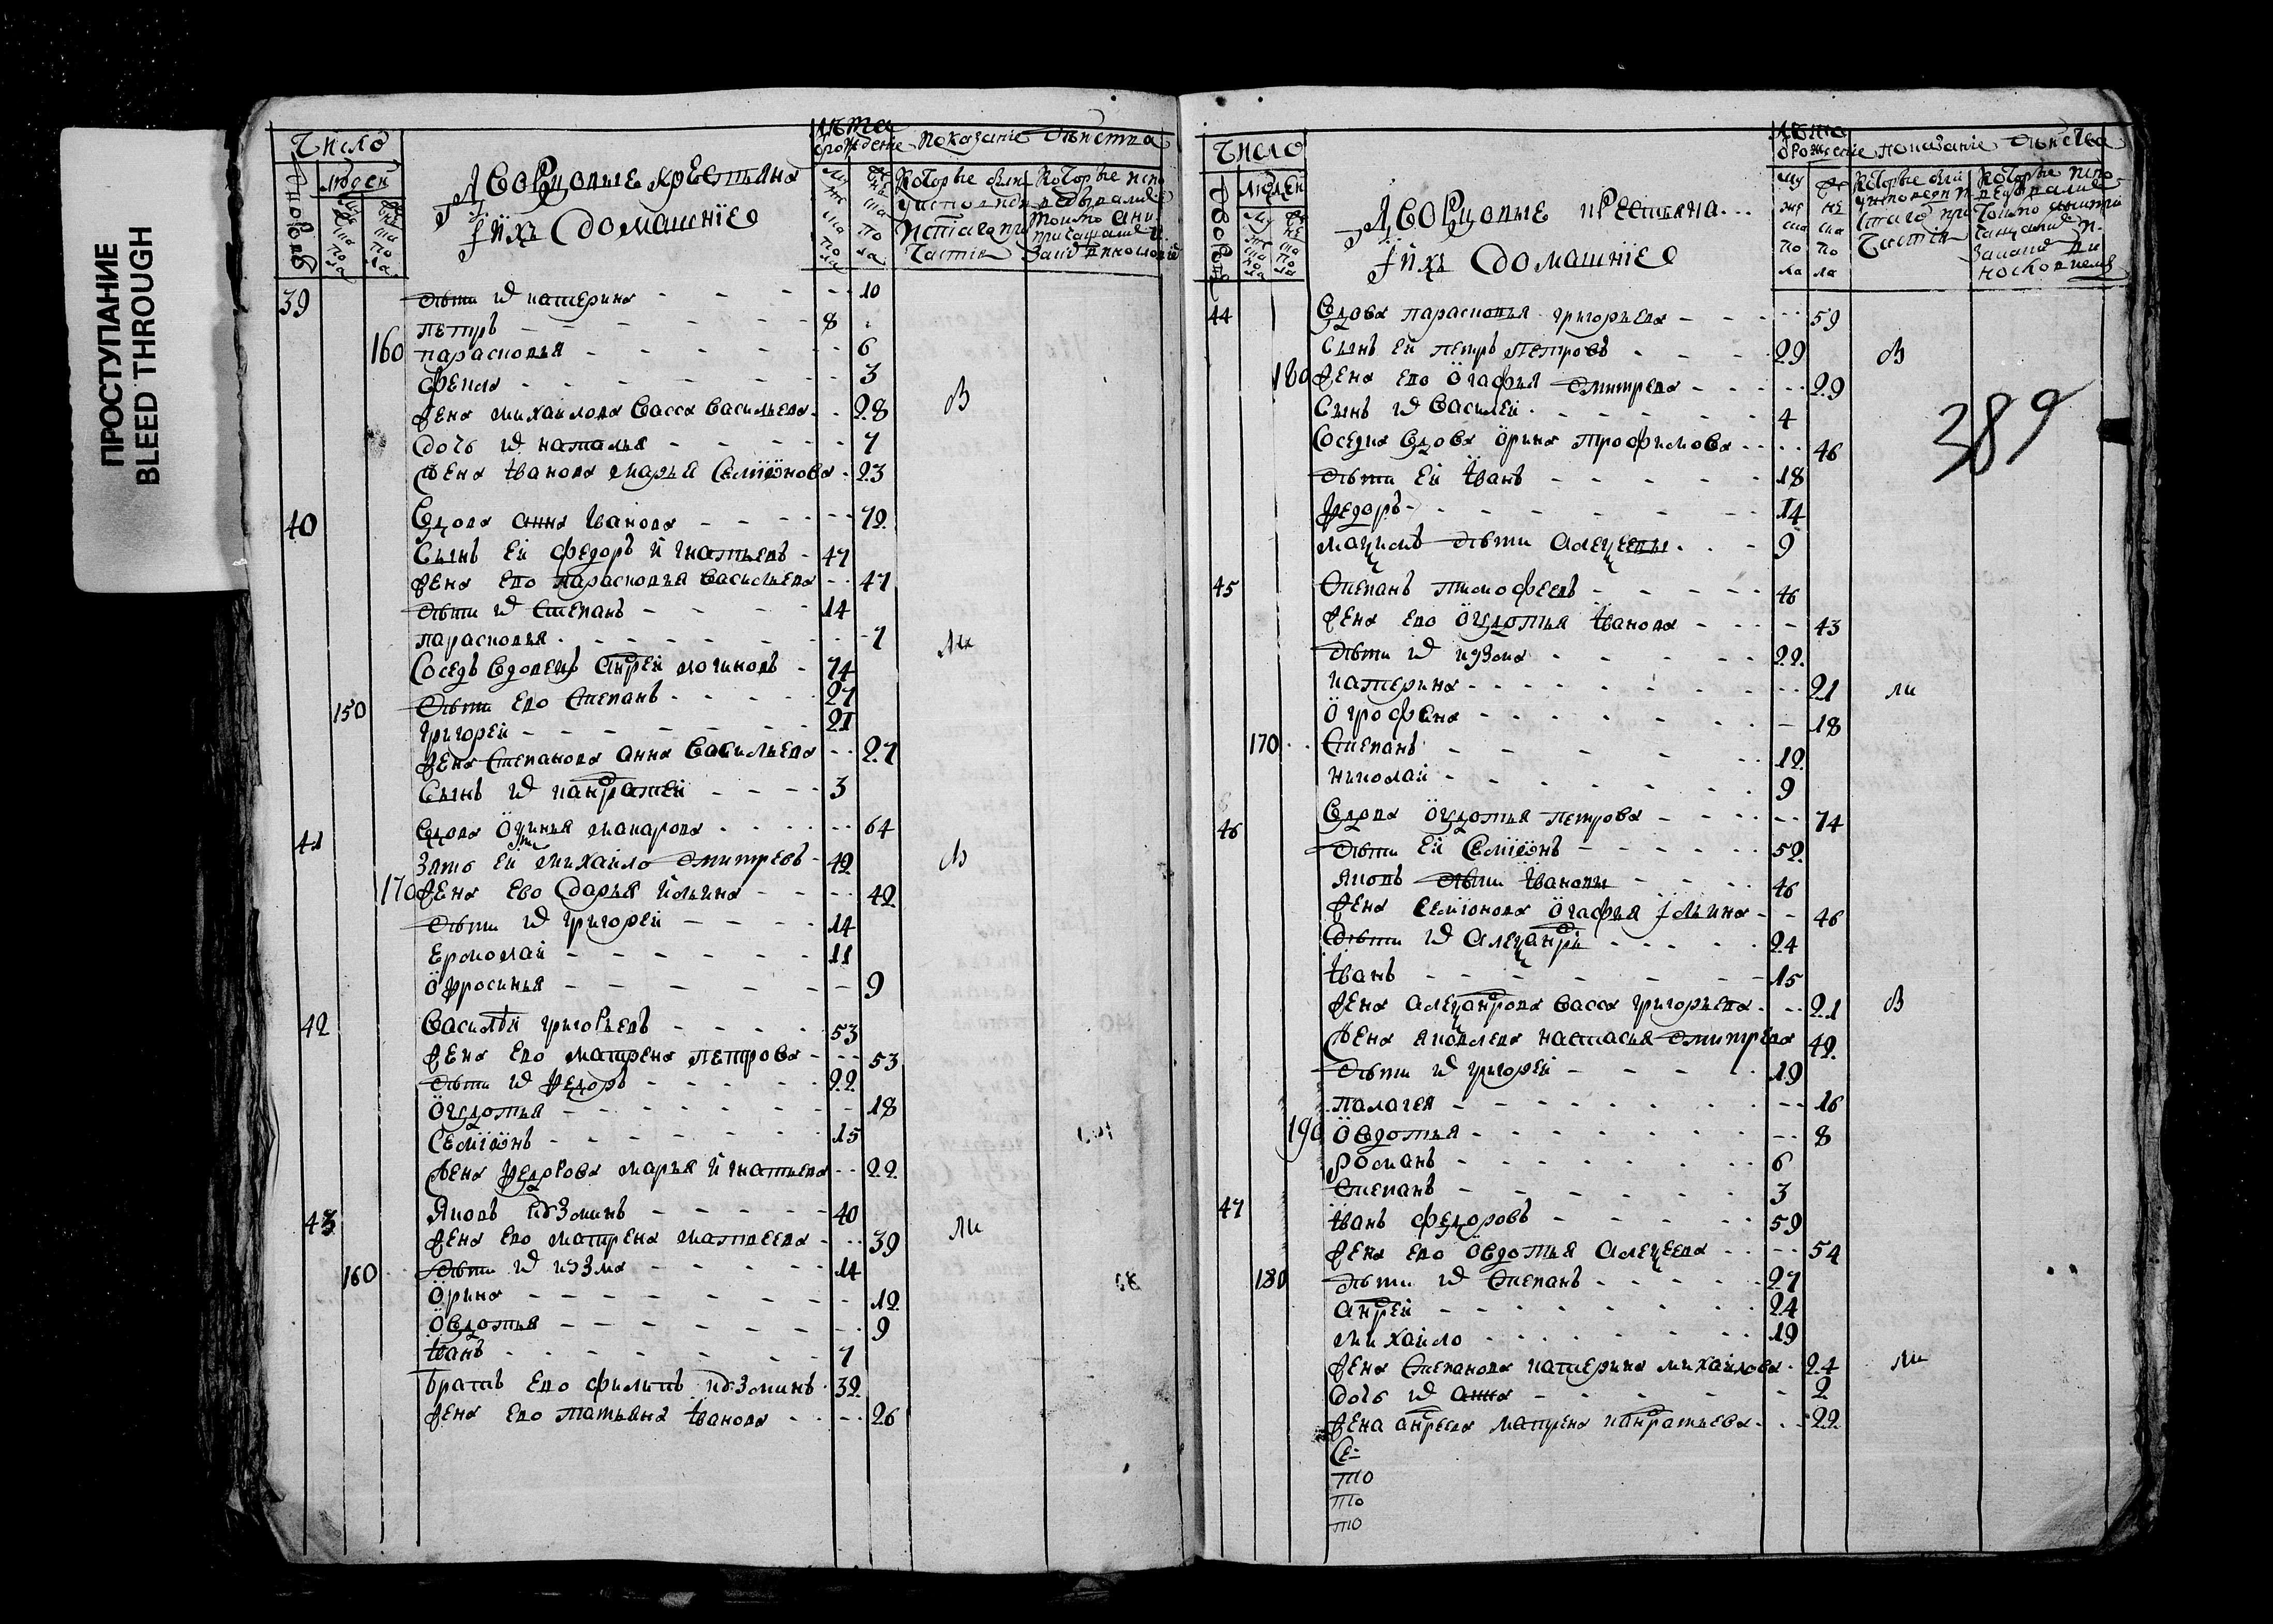 ПРОСТУПАНИЕ
BLEED THROUGH
Число
дворовъ
людей
мужеска пола
женска пола
Дворцовые крестьяна
і ихъ домашніе
лѣта
ѿ рожденіе
мужеска пола
женска пола
показаніе дѣиства
39 дѣти их катерина - - - 10
петръ - - - 8
160 парасковья - - - 6
фекла - - - 3
жена михаилова васса васильева - 28 в
дочь их наталья - - - 7
жена іванова марья семіѡнова - 23
40 вдова анна іванова - - - 72
сынъ ей федоръ игнатьевъ - 47
жена ево парасковья васильева - - 47
дѣти их степанъ - - - 14
парасковья - - - 7
сосѣдъ вдовецъ андрей логиновъ - 74 ли
150 дѣти ево степанъ - - - 27
григорей - - - 21
жена степанова анна васильева - - 27
сынъ их кандратей - - - 3
41 вдова макарова - - - 64
зять ей михайло дмитревъ - 42 в
170 жена ево дарья ильина - - - 42
дѣти их григорей - - - 14
ермолай - - - 11
офросинья - - - 9
42 василѣй григорьевъ - - - 53
жена ево матрена петрова - - - 53
дѣти их федоръ - - - 22
огдотья - - - 18
семіѡнъ - - - 15
жена федорова марья игнатьева - - 22
43 яковъ кузминъ - - - 40
жена ево матрена матвеева - - - 39 ли
160 дѣти их кузма - - - 14
орина - - - 12
овдотья - - - 9
іванъ - - - 7
братъ ево филипъ кузминъ - 32
жена ево татьяна іванова - - - 26
Число
дворовъ
людей
мужеска пола
женска пола
Дворцовые крестьяна...
і ихъ домашніе
лѣта
ѿ рожденіе
показаніе дѣиства
44 вдова парасковья григорьева - - - 59
сынъ ей петръ петровъ - - - 29 в
180 жена ево огафья дмитрева - - - 29
389
сынъ их василей - - - 4
соседка вдова орина трофимова - - - 46
дѣти ей іванъ - - - 18
федоръ - - - 14
мацимъ дѣти алецеевы - - - 9
45 степанъ тимофеевъ - - - 46
жена ево огдотья іванова - - - 43
дѣти их кузма - - - 22
катерина - - - 21 ли
огрофена - - - 18
170 степанъ - - - 12
николай - - - 9
46 вдова огдотья петрова - - - 74
дѣти ей семіѡнъ - - - 52
яковъ дѣти івановы - - - 46
жена семіонова огафья ільина - - 46
дѣти их алецандръ - - - 24
іванъ - - - 15
жена алецандрова васса григорьева - - - 21 в
жена яковлева настасья дмитрева 42
дѣти их григорей - - - 19
палагея - - - 16
190 овдотья - - - 8
романъ - - - 6
степанъ - - - 3
47 іванъ федоровъ - - - 59
жена ево овдотья алецеева - - - 54
180 дѣти их степанъ - - - 27
андрей - - - 24
михайло - - - 19
жена степанова катерина михайлова - 24 ли
дочь их анна - - - 2
жена андреева матрена кандратьева - - - 22
се-
то
то
то